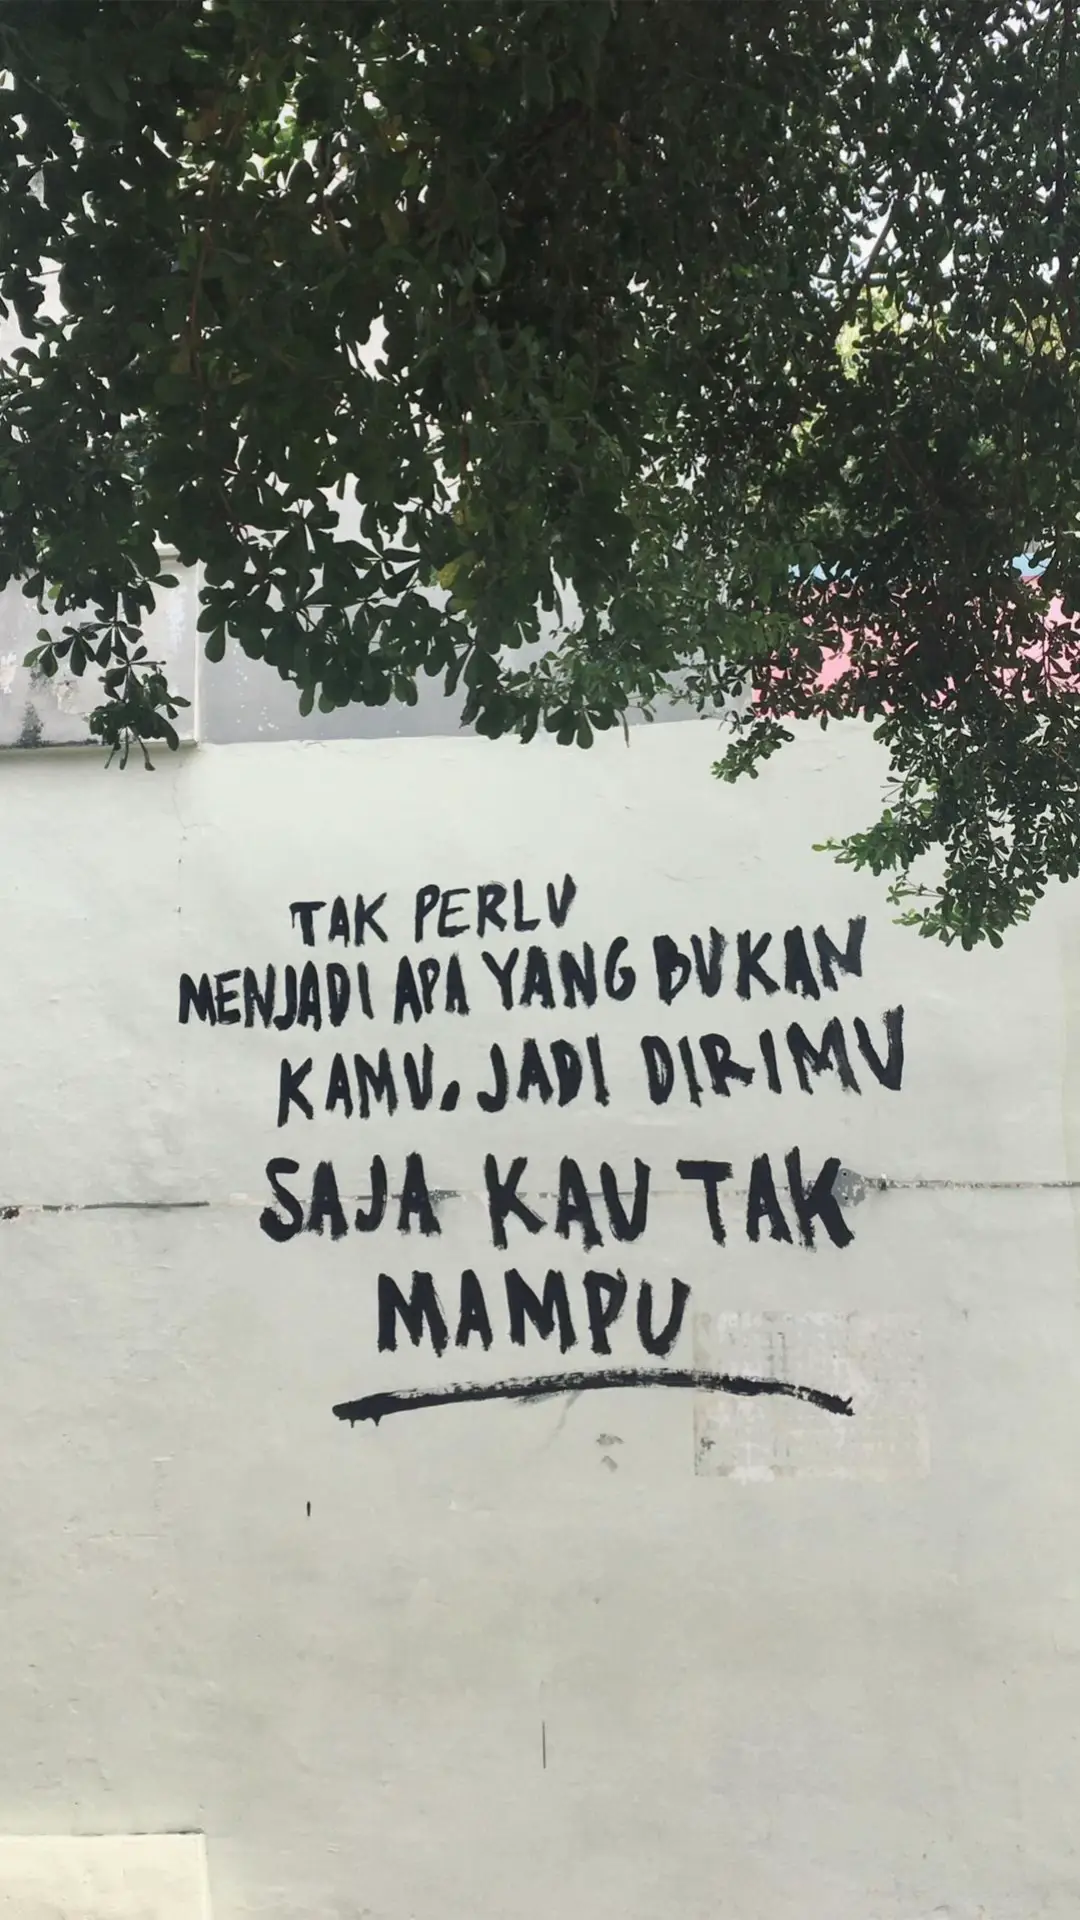 TAK PERLU
MENJADI APA YANG BUKAN
KAMU. JADI DIRIMU
SAJA KAU TAK
MAMPU